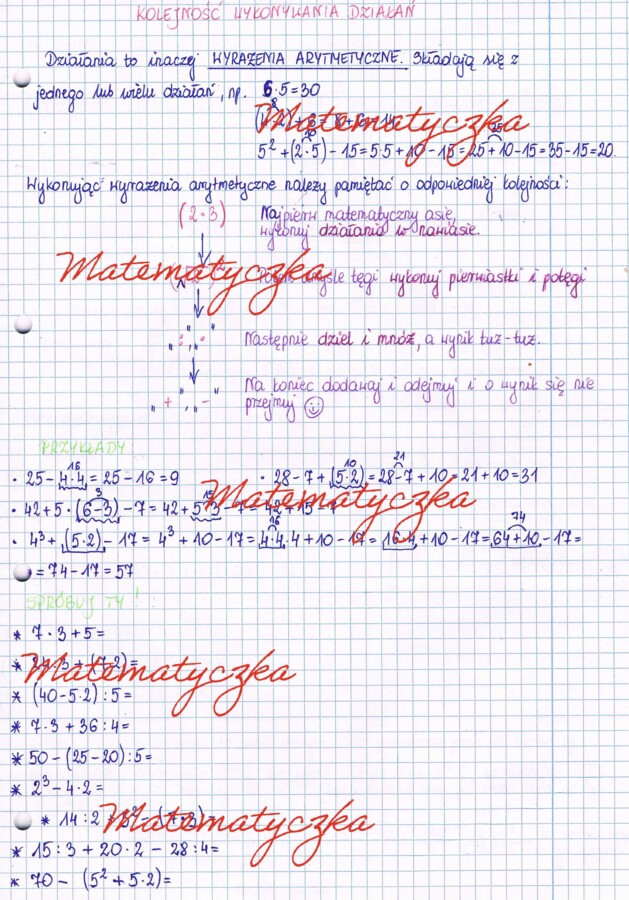 KOLEJNOŚĆ WYKONYWANIA DZIAŁAŃ
Działania to inaczej WYRAŻENIA ARYTMETYCZNE. Składają się z
jednego lub wielu działań, np. 6·5=30
Matematyczka
5² + (2·5) - 15 = 5·5 + 10 - 15 = 25 + 10 - 15 = 35 - 15 = 20
Wykonując wyrażenia arytmetyczne należy pamiętać o odpowiedniej kolejności:
(2·3) Najpierw matematyczny asie,
wykonuj działania w nawiasie.
Matematyczka tęgi wykonuj pierwiastki i potęgi
" : " , " · " Następnie dziel i mnóż, a wynik tuż-tuż.
" + " , " - " Na koniec dodawaj i odejmuj i o wynik się nie
przejmuj ☺
PRZYKŁADY:
16
· 25 - 4·4 = 25 - 16 = 9
10 21
· 28 - 7 + (5·2) = 28 - 7 + 10 = 21 + 10 = 31
3 15
· 42 + 5 · (6-3) - 7 = 42 + 5·3 - 7 = 42 + 15 - 7
Matematyczka
16 74
· 4³ + (5·2) - 17 = 4³ + 10 - 17 = 4·4·4 + 10 - 17 = 16·4 + 10 - 17 = 64 + 10 - 17 =
= 74 - 17 = 57
SPRÓBUJ TY!
* 7·3 + 5 =
Matematyczka
* (40 - 5·2) : 5 =
* 7·3 + 36 : 4 =
* 50 - (25 - 20) : 5 =
* 2³ - 4·2 =
* 14 : 2
Matematyczka
* 15 : 3 + 20·2 - 28 : 4 =
* 70 - (5² + 5·2) =